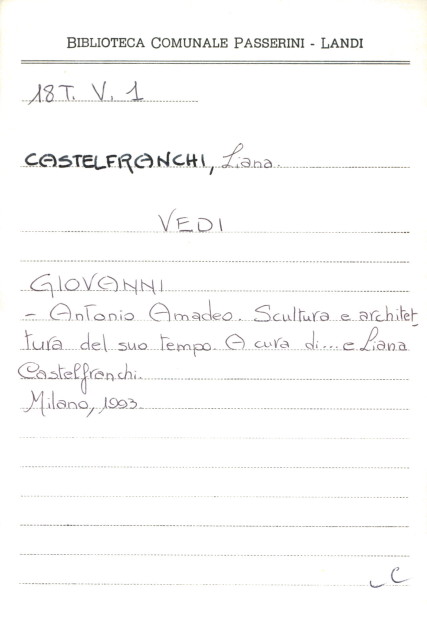 BIBLIOTECA COMUNALE PASSERINI - LANDI
18T. V. 1
CASTELFRANCHI, Liana.
VEDI
GIOVANNI
- Antonio Amadeo. Scultura e architet_
tura del suo tempo. A cura di... e Liana
Castelfranchi.
Milano, 1993.